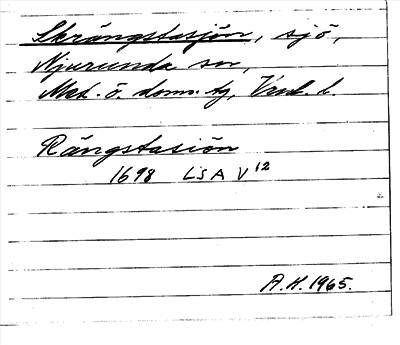 Skrängstasjön, sjö,
Njurunda sn,
Med. ö. doms. tg, Vnl. l.
Rängstasiön
1698 LSA V¹²
A.H. 1965.